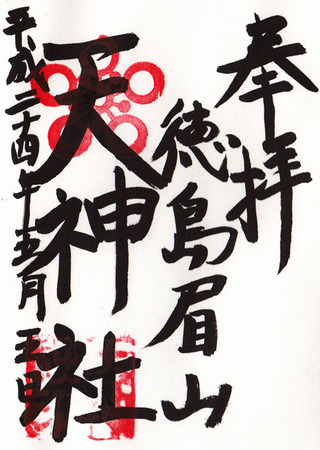 奉拝
徳島眉山
天神社
平成二十四年五月五日